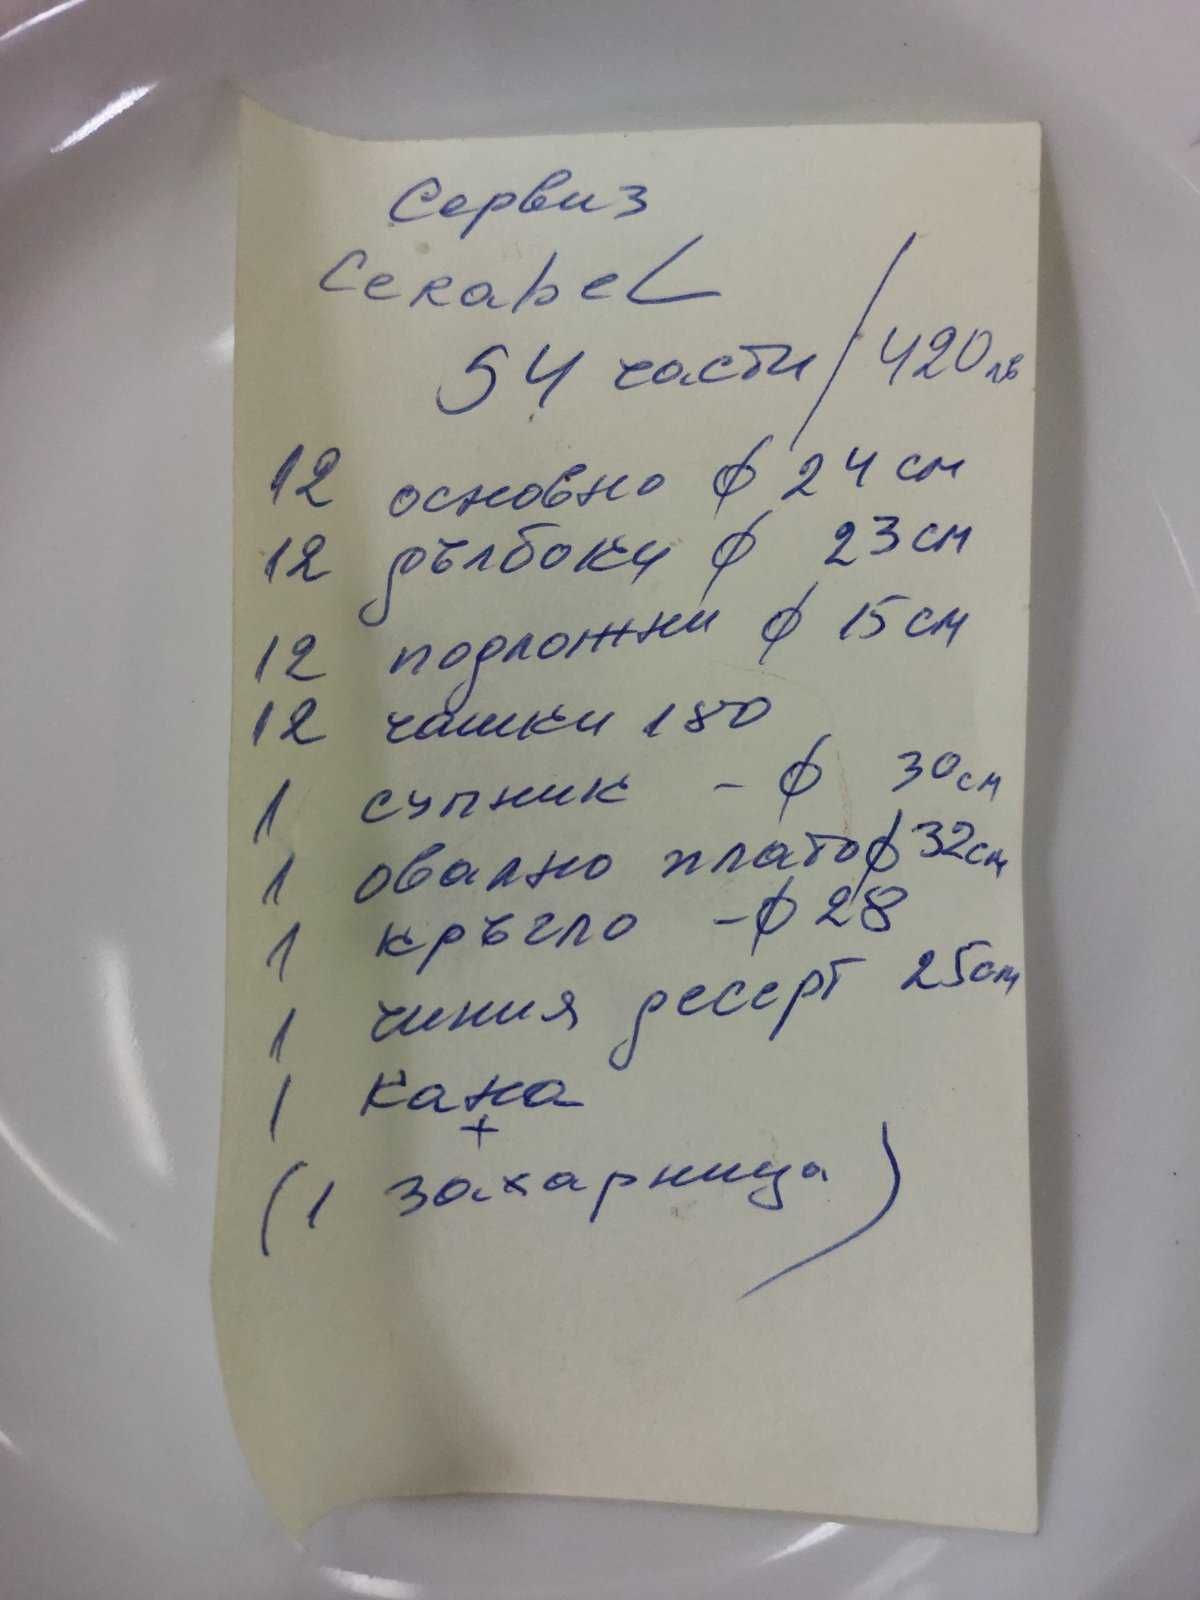 Сервиз
CeRabeL
54 части / 420 лв
12 основно ф 24 см
12 дълбоки ф 23 см
12 подложни ф 15 см
12 чашки 180
1 супник - ф 30 см
1 овално плато ф 32 см
1 кръгло - ф 28
1 чиния десерт 25 см
1 кана
+
(1 захарница)